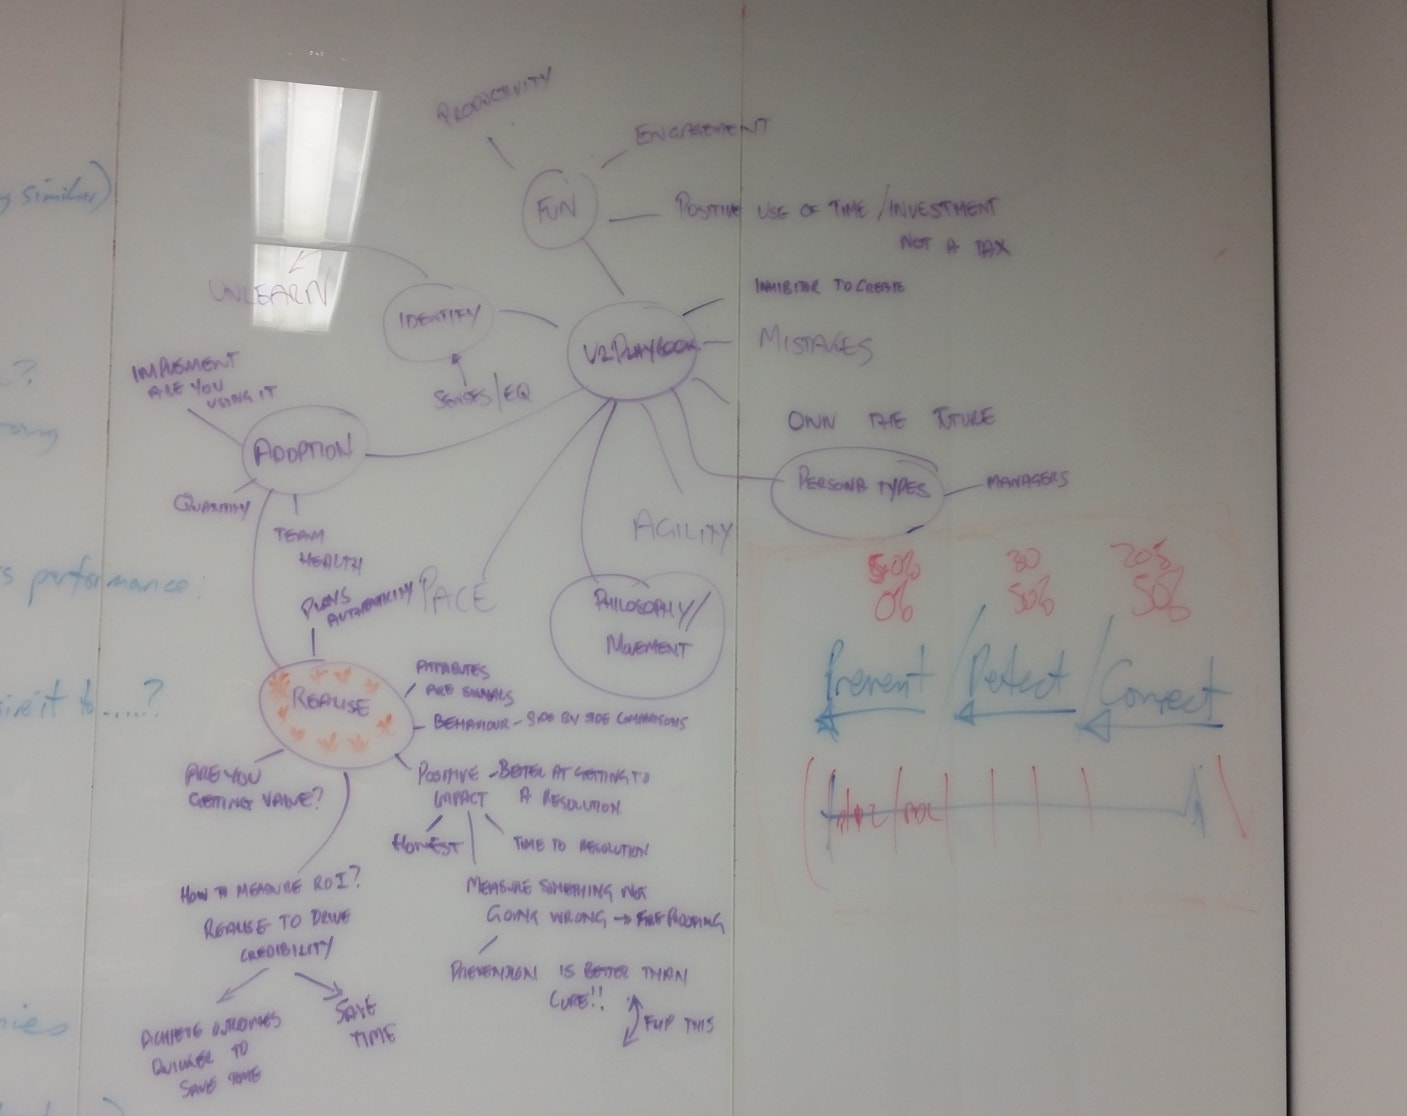 similar)
PRODUCTIVITY
ENGAGEMENT
FUN
POSITIVE USE OF TIME / INVESTMENT
NOT A TAX
UNLEARN
IDENTITY
INHIBITOR TO
V2 PLAYBOOK
MISTAKES
SENSES/EQ
IMPLEMENT
ARE YOU
USING IT
OWN THE FUTURE
ADOPTION
QUANTITY
PERSONA TYPES
MANAGERS
TEAM
HEALTH
AGILITY
50% 30 20%
0% 50% 50%
s performance
PLAYS
AUTHENTICITY
PACE
PHILOSOPHY/
MOVEMENT
Prevent / Detect / Correct
REALISE
ARE SIGNALS
BEHAVIOUR - SIDE BY SIDE COMPARISONS
it to .....?
ARE YOU
GETTING VALUE?
POSITIVE
IMPACT
- BETTER AT GETTING TO
A RESOLUTION
HONEST
TIME TO RESOLUTION
HOW TO MEASURE ROI?
REALISE TO DRIVE
CREDIBILITY
MEASURE SOMETHING NOT
GOING WRONG → FIREPROOFING
PREVENTION IS BETTER THAN
CURE!!
FLIP THIS
ACHIEVE OUTCOMES
QUICKER TO
SAVE TIME
SAVE
TIME